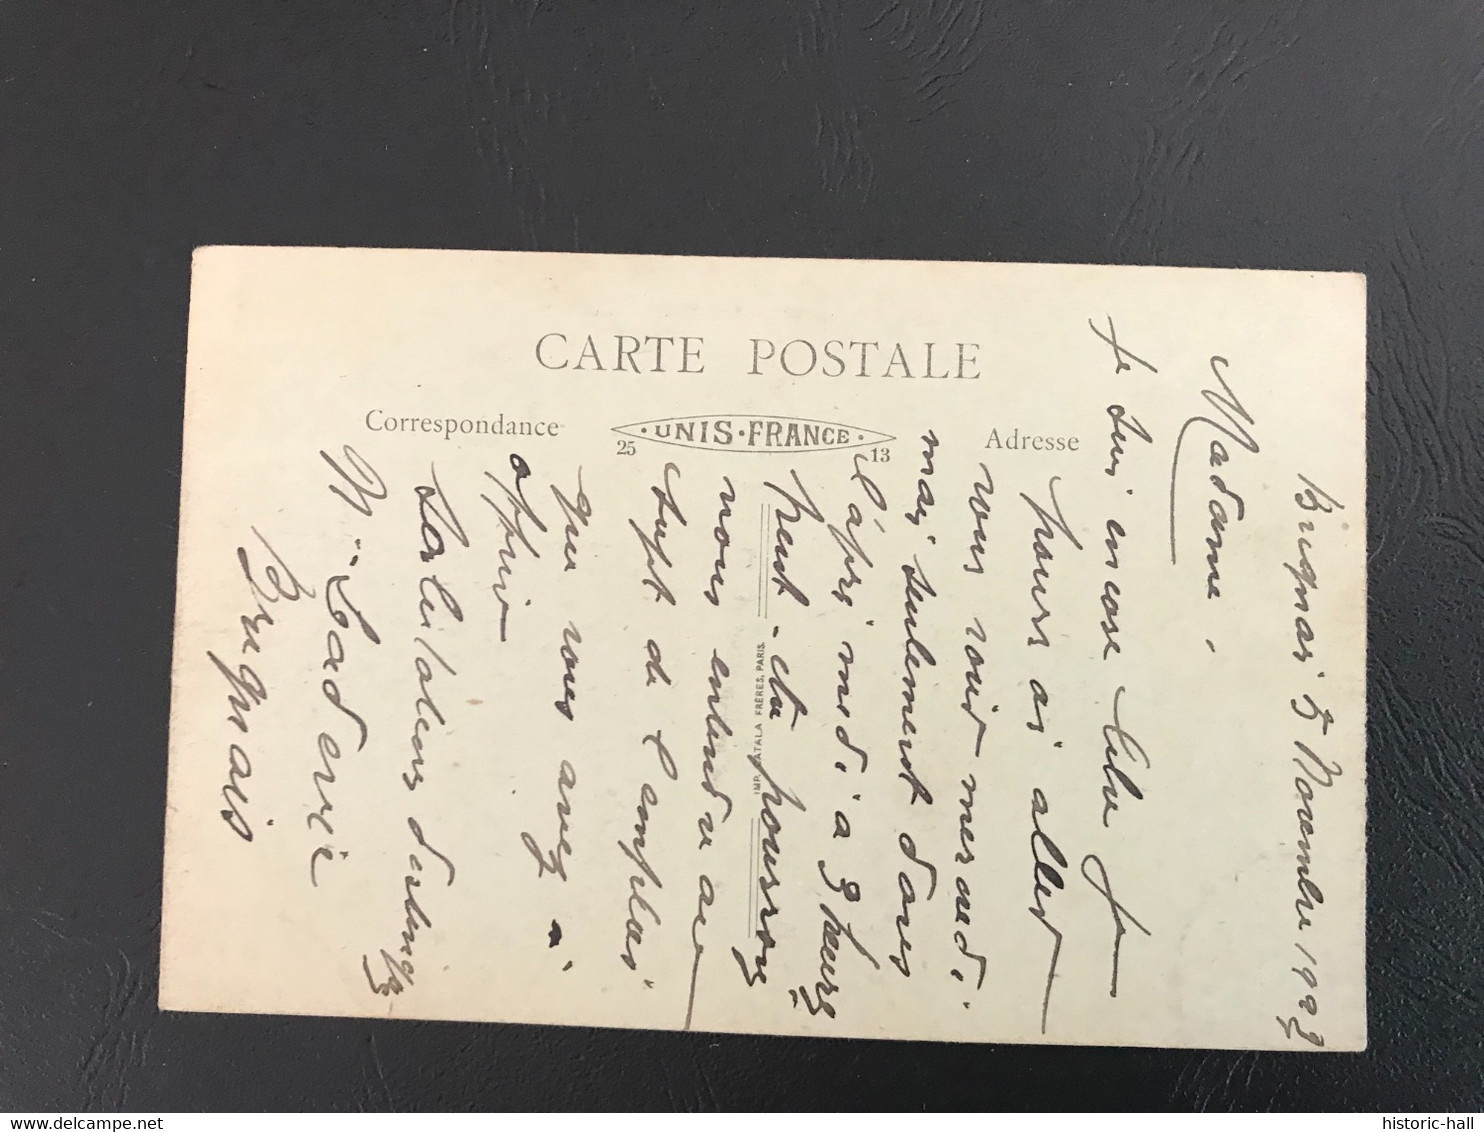 CARTE POSTALE
Correspondance
25 UNIS-FRANCE 13
Adresse
IMP. CATALA FRÈRES, PARIS.
Brignais 5 Novembre 1923
Madame.
Je suis encore libre je
pourrai aller
vous voir mercredi
mais seulement dans
l'après midi à 3 heures
peut-etre pourrons
nous entendre au
sujet de l'emploi
que vous avez à
offrir
Salutations
M.
Brignais
historic-hall
www.delcampe.net